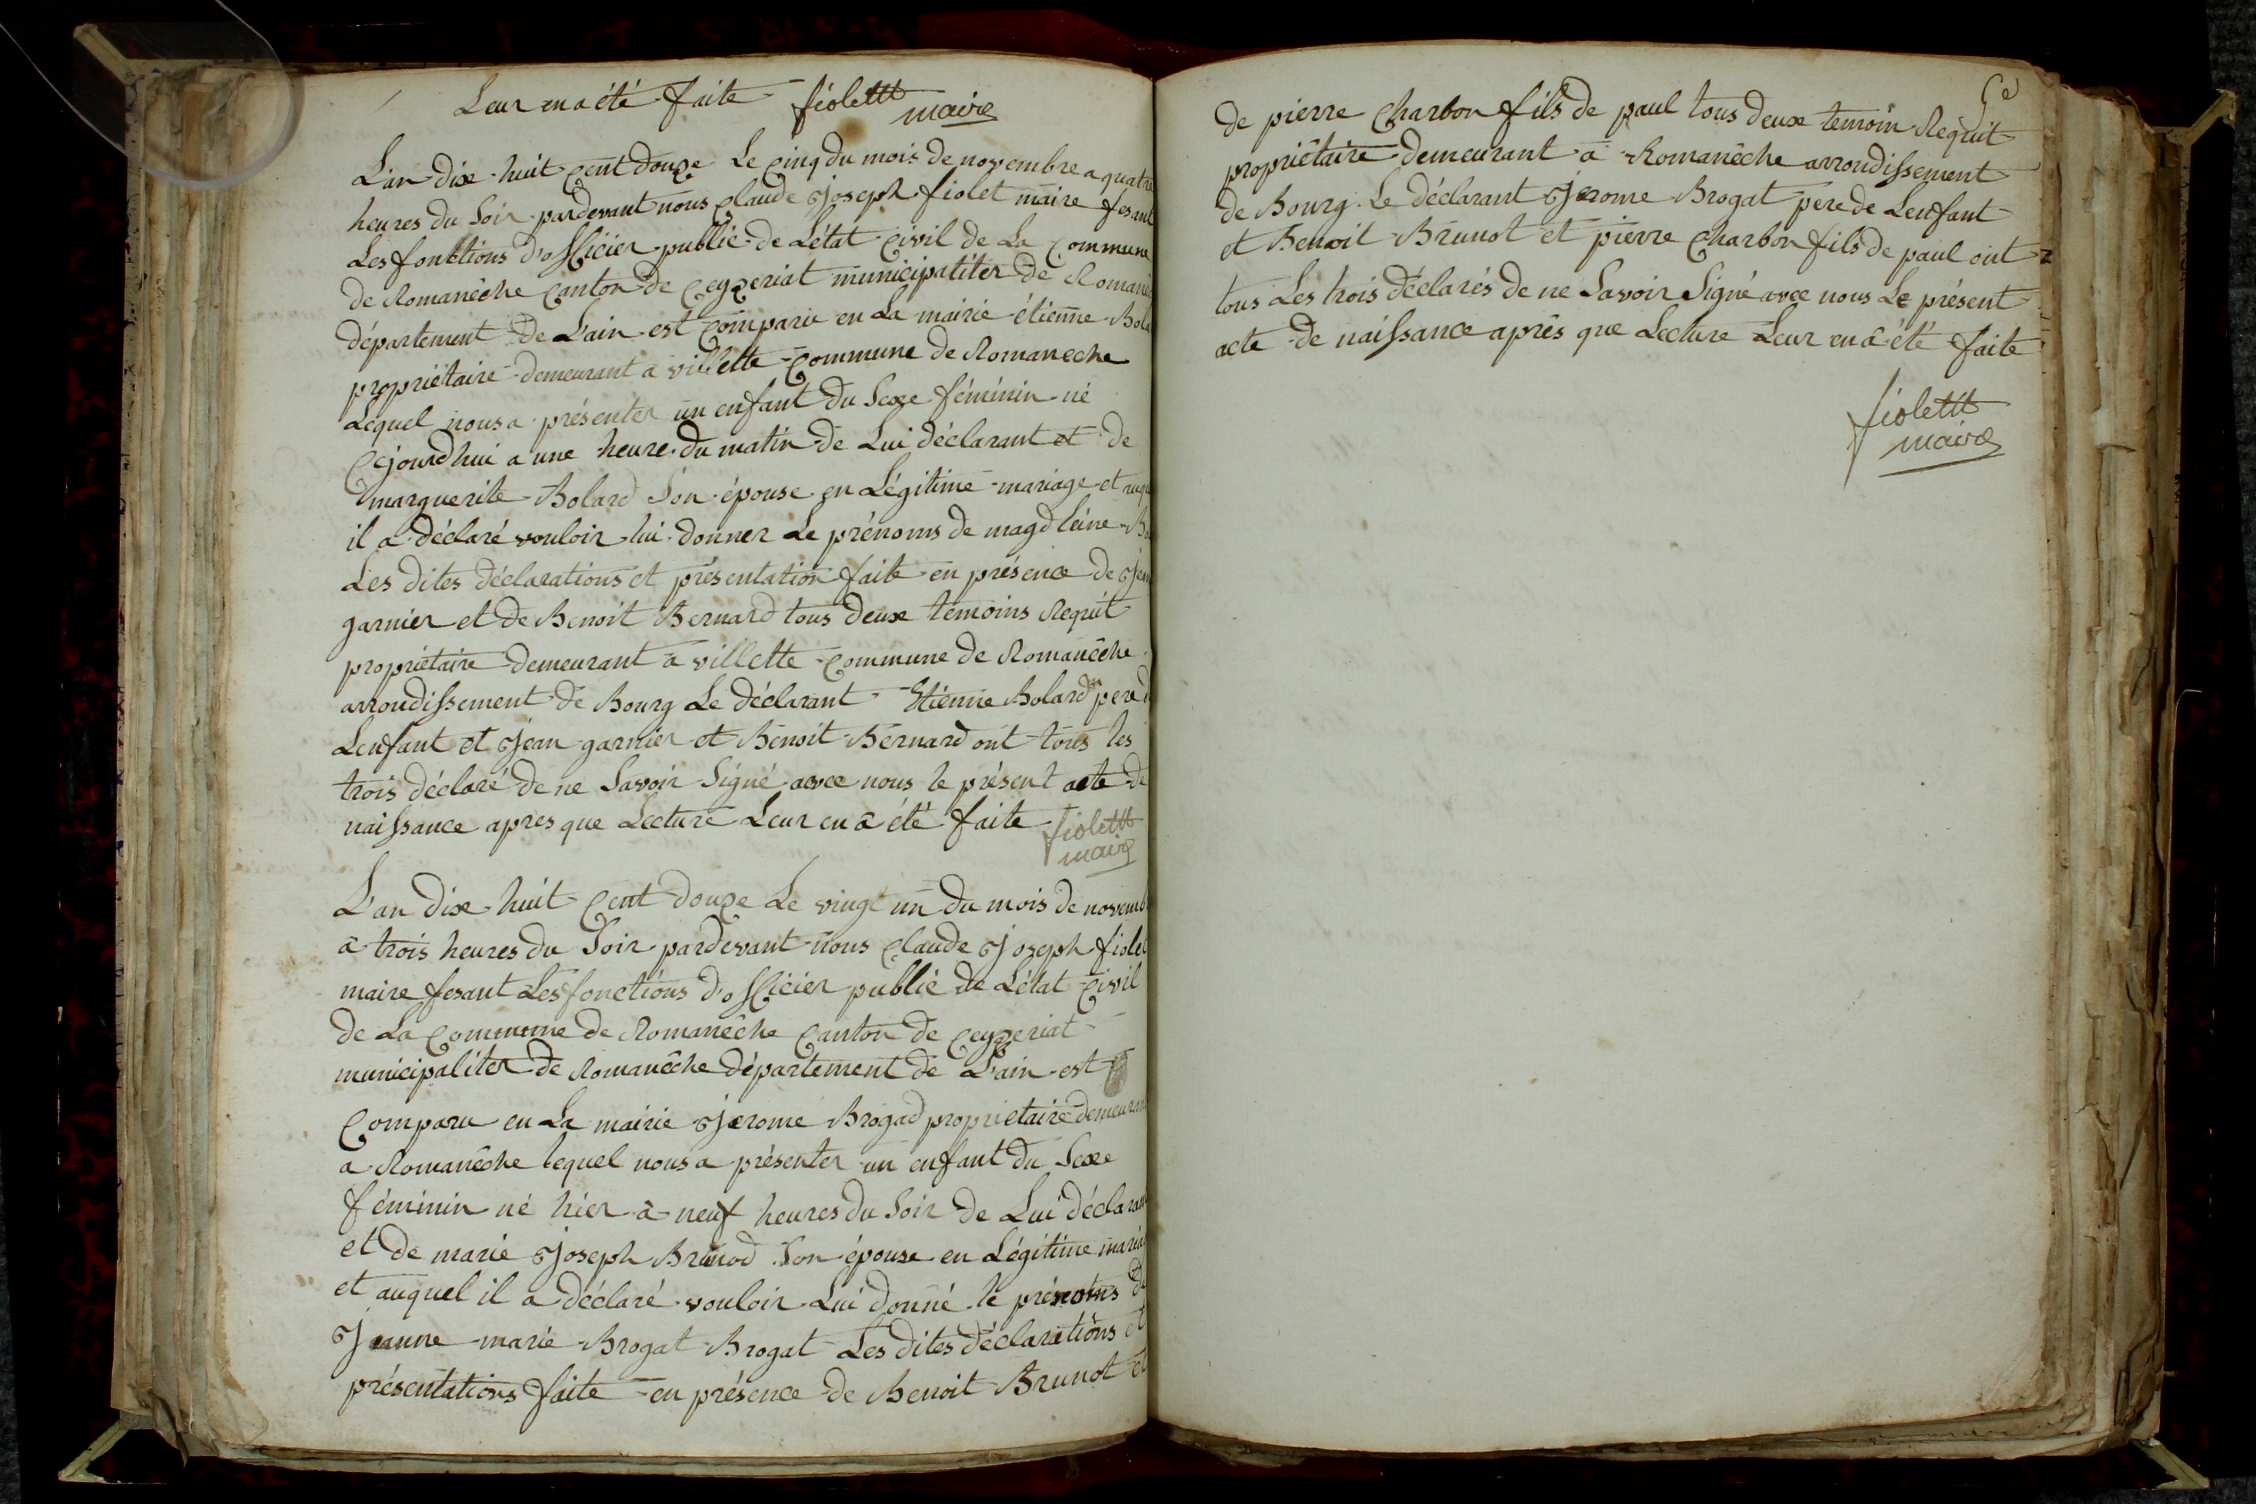 Leur en a été faite fiolet
maire
L'an dix huit cent douze Le cinq du mois de novembre a quatre
heures du Soir pardevant nous Claude joseph fiolet maire fesant
Les fonctions d'officier public de L'état civil de La Commune
de Romanêche Canton de Ceyzeriat municipalitér de Romanê
département de L'ain est comparu en La mairie étienne Bola
propriétaire demeurant à villette commune de Romaneche
Lequel nous a présenter un enfant du Sexe féminin né
Cejourd'hui a une heure du matin de Lui déclarant et de
marguerite Bolard Son épouse en Légitime mariage et auqu
il a déclaré vouloir lui donner Le prénoms de magdleine Bo
Les dites déclarations et présentation faite en présence de jean
garnier et de Benoit Bernard tous deux temoins Requit
propriétaire demeurant à villette commune de Romanêche
arrondissement de Bourg Le déclarant Etienne Bolard pere d
Lenfant et jean garnier et Benoit Bernard ont tous les
trois déclaré de ne Savoir Signé avec nous le présent acte de
naissance apres que Lecture Leur en a été faite fiolet
maire
L'an dix huit Cent douze Le vingt un du mois de novemb
à trois heures du Soir pardevant nous Claude joseph fiolet
maire fesant Les fonctions d'officier public de L'état civil
de La Commune de Romanêche Canton de Ceyzeriat
municipalitér de Romanêche département de L'ain est
Comparu en La mairie jerome Brogad propriétaire demeurant
a Romanêche lequel nous a présenter un enfant du Sexe
féminin né hier à neuf heures du Soir de Lui déclarant
et de marie joseph Brunod Son épouse en Légitime maria
et auquel il a déclaré vouloir Lui donné le prénoms de
Jeanne marie Brogat Brogat Les dites déclarations et
présentations faite en présence de Benoit Brunot et
de pierre Charbon fils de paul tous deux temoin Requit
propriétaire demeurant à Romanêche arrondissement
de Bourg. Le déclarant jerome Brogat pere de Lenfant
et Benoit Brunot et pierre Charbon fils de paul ont
tous Les trois déclarés de ne Savoir Signé avec nous Le présent
acte de naissance après que Lecture Leur en a été faite
fiolet
maire